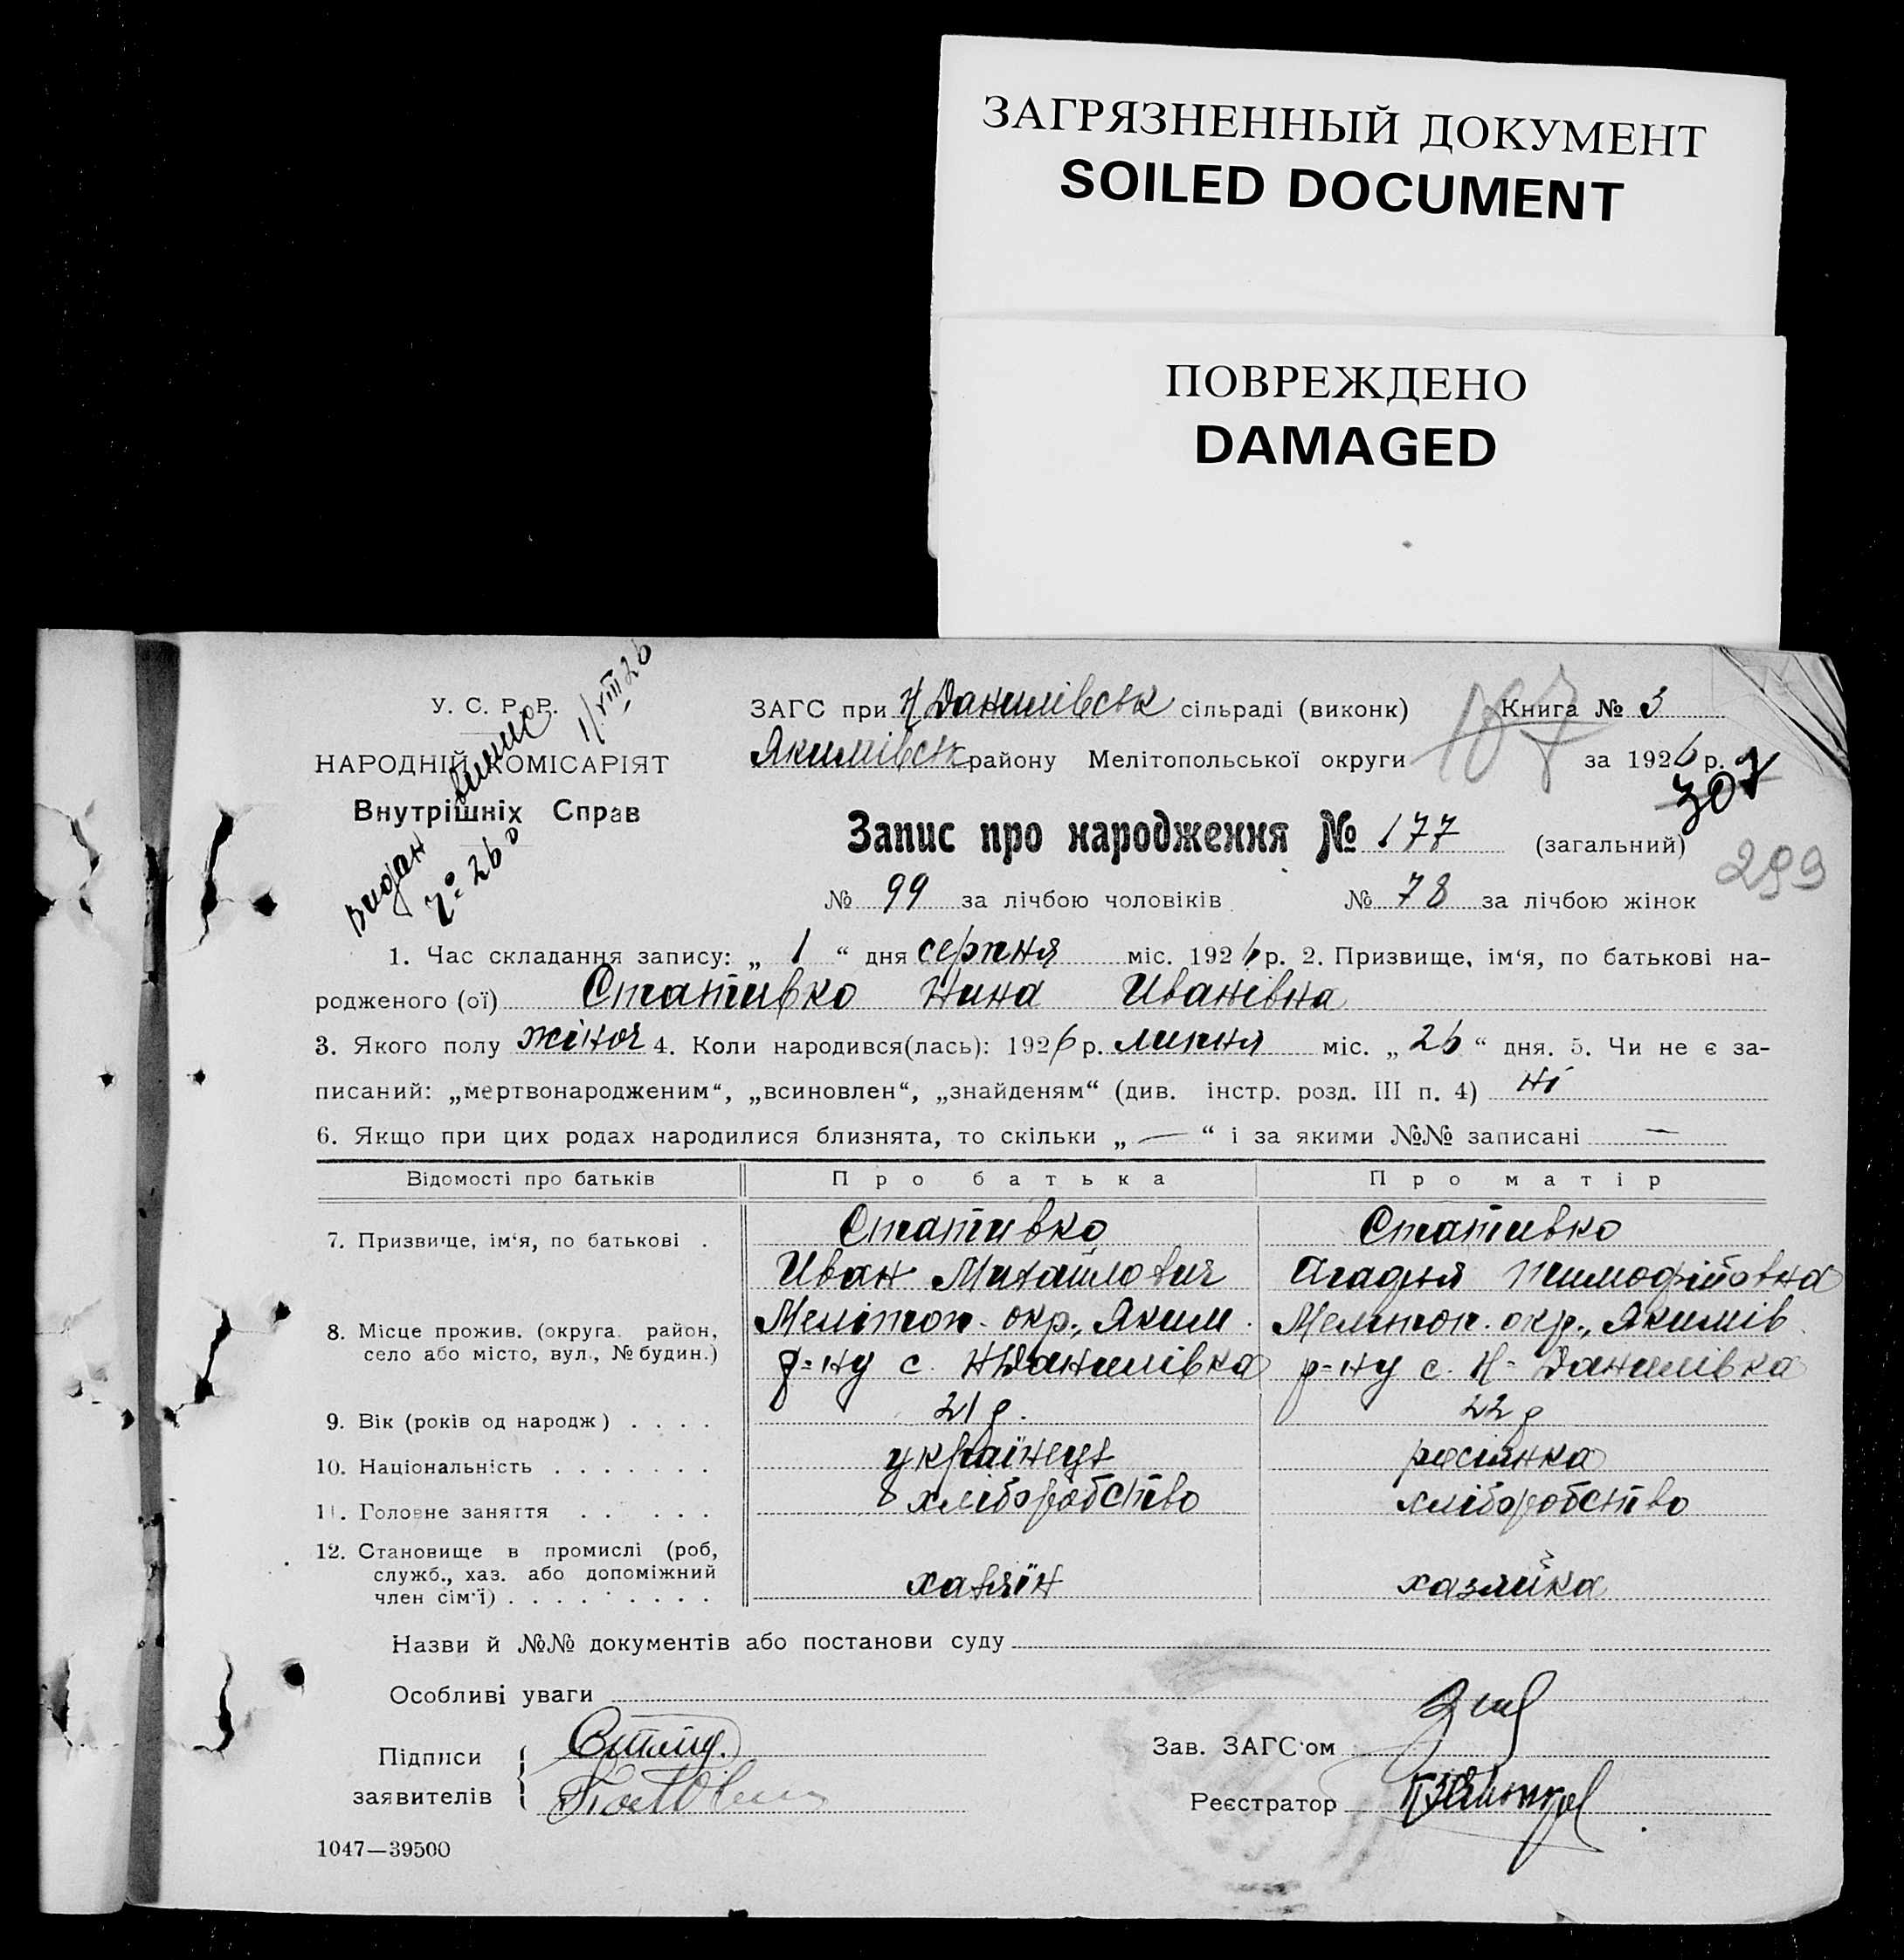 ЗАГРЯЗНЕННЫЙ ДОКУМЕНТ
SOILED DOCUMENT
ПОВРЕЖДЕНО
DAMAGED
У. С. Р. Р.
НАРОДНІЙ КОМІСАРІЯТ
Внутрішніх Справ
Видан
№ 260
1/VIII 26
ЗАГС при Н Данилівськ сільраді (виконк) Книга № 3
Якимівськ району Мелітопольської округи за 1926 р.
187
307
299
Запис про народження № 177 (загальний)
№ 99 за лічбою чоловіків № 78 за лічбою жінок
1. Час складання запису: „ 1 “ дня серпня міс. 1926 р. 2. Призвище, ім‘я, по батькові на-
родженого (ої) Стативко Нина Иванівна
3. Якого полу жіноч 4. Коли народився(лась): 1926 р. липня міс. „ 26 “ дня. 5. Чи не є за-
писаний: „мертвонародженим“, „всиновлен“, „знайденям“ (див. інстр. розд. III п. 4) ні
6. Якщо при цих родах народилися близнята, то скільки „ — “ і за якими №№ записані —
Відомості про батьків Про батька Про матір
7. Призвище, ім‘я, по батькові . Стативко Стативко
Иван Михайлович Агафия Тимофійовна
8. Місце прожив. (округа район, Мелітоп. окр., Яким. Мелітоп. окр., Якимів
село або місто, вул., № будин.) р-ну с. Н Данилівка р-ну с. Н-Данилівка
9. Вік (років од народж) . . . . 21 р. 22 р
10. Національність . . . . . . . українець росіянка
11. Головне заняття . . . . . хліборобство хліборобство
12. Становище в промислі (роб,
служб., хаз. або допоміжний хазяїн хазяйка
член сім‘ї) . . . . . . . . .
Назви й №№ документів або постанови суду
Особливі уваги
Підписи
заявителів
Зав. ЗАГС‘ом
Реєстратор
1047—39500